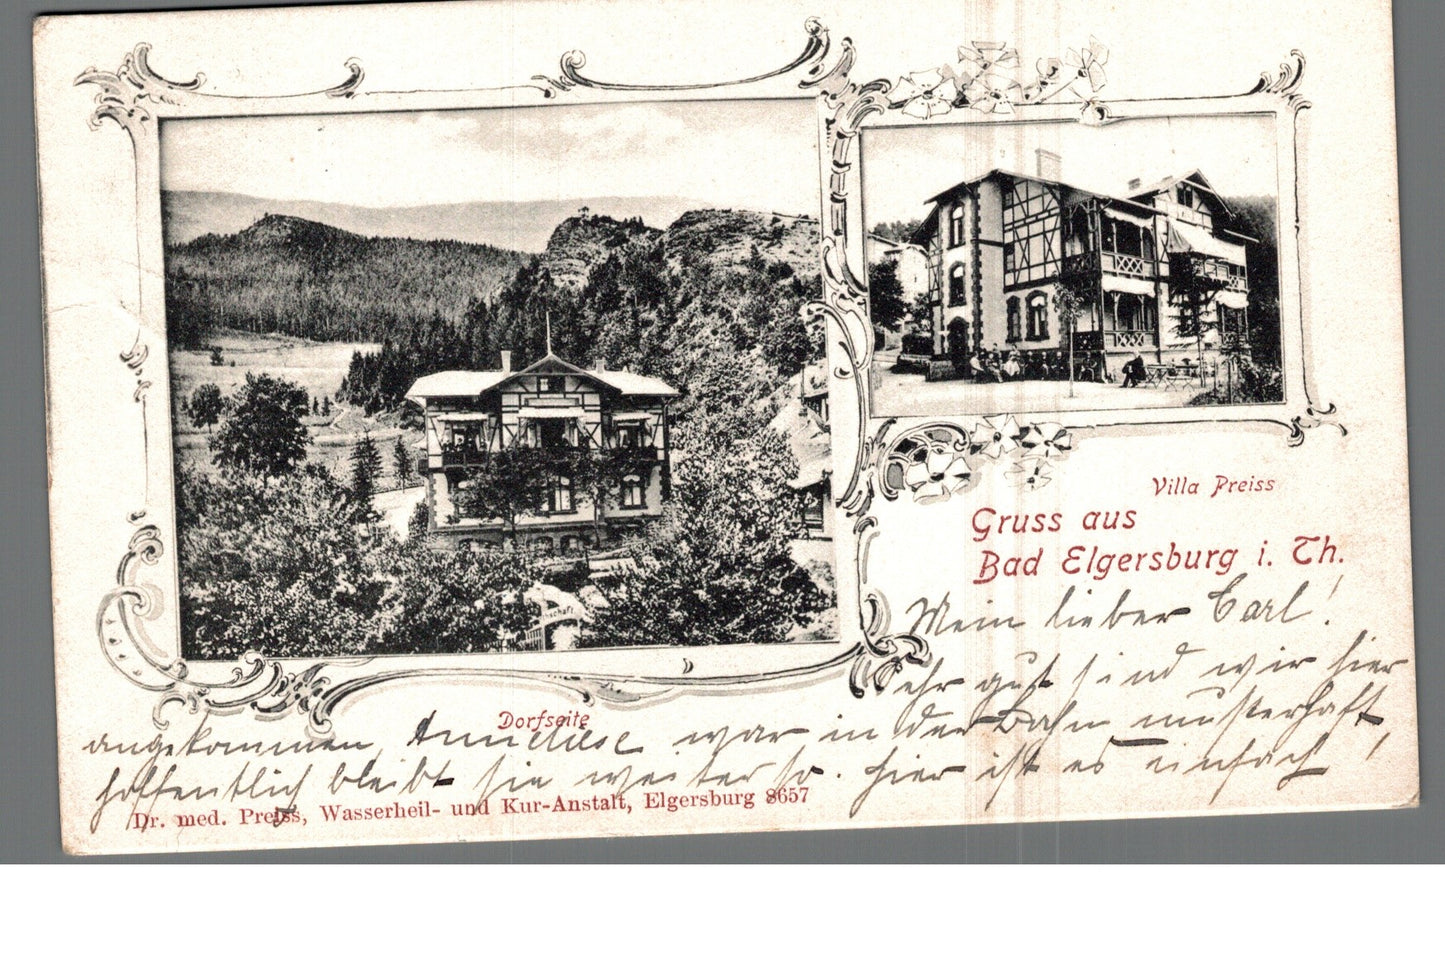 Villa Preiss
Gruss aus
Bad Elgersburg i. Th.
Mein lieber Carl!
Sehr gut sind wir hier
Dorfseite
angekommen, Anneliese war in der Bahn musterhaft,
hoffentlich bleibt sie weiter so. Hier ist es einfach!
Dr. med. Preiss, Wasserheil- und Kur-Anstalt, Elgersburg 8657